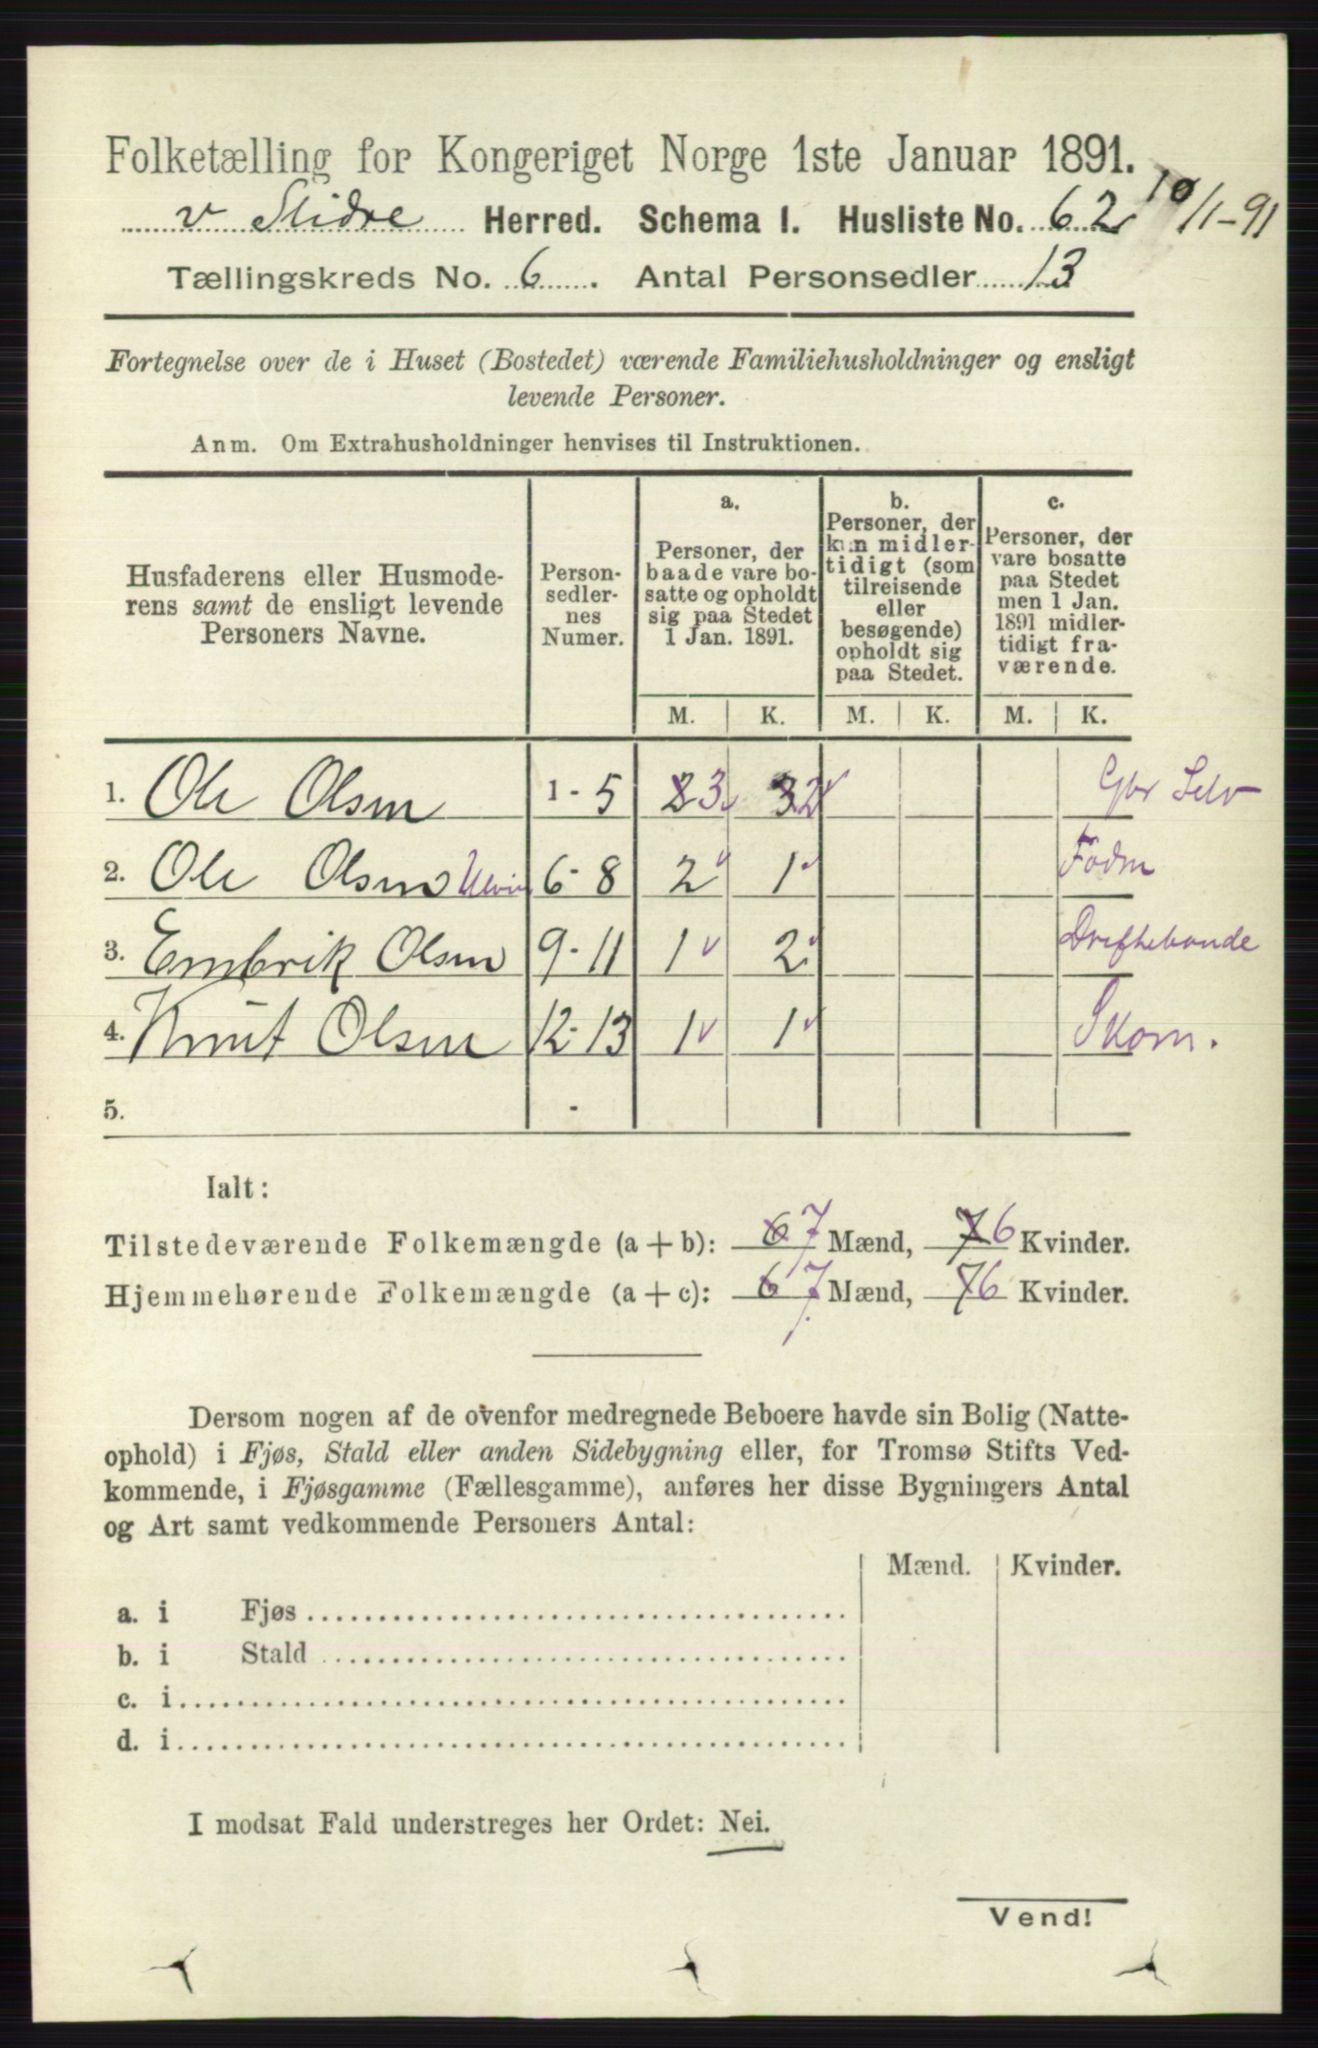 Folketælling for Kongeriget Norge 1ste Januar 1891.
v Slidre Herred. Schema I. Husliste No. 62 10/1-91
Tællingskreds No. 6. Antal Personsedler 13
Fortegnelse over de i Huset (Bostedet) værende Familiehusholdninger og ensligt
levende Personer.
Anm. Om Extrahusholdninger henvises til Instruktionen.
Husfaderens eller Husmode-
rens samt de ensligt levende
Personers Navne.
Person-
sedler-
nes
Numer.
a.
Personer, der
baade vare bo-
satte og opholdt
sig paa Stedet
1 Jan. 1891.
b.
Personer, der
kun midler-
tidigt (som
tilreisende
eller
besøgende)
opholdt sig
paa Stedet.
c.
Personer, der
vare bosatte
paa Stedet
men 1 Jan.
1891 midler-
tidigt fra-
værende.
M. K. M. K. M. K.
1. Ole Olsen 1 - 5 2 3 3 2 Gbr Selv
2. Ole Olsen 6 - 8 2 1 Födm
3. Embrik Olsen 9 - 11 1 2 Driftebonde
4. Knut Olsen 12 - 13 1 1 Skom.
5. -
Ialt:
Tilstedeværende Folkemængde (a + b): 6 7 Mænd, 7 6 Kvinder.
Hjemmehørende Folkemængde (a + c): 6 7 Mænd, 7 6 Kvinder.
Dersom nogen af de ovenfor medregnede Beboere havde sin Bolig (Natte-
ophold) i Fjøs, Stald eller anden Sidebygning eller, for Tromsø Stifts Ved-
kommende, i Fjøsgamme (Fællesgamme), anføres her disse Bygningers Antal
og Art samt vedkommende Personers Antal:
Mænd. Kvinder.
a. i Fjøs
b. i Stald
c. i
d. i
I modsat Fald understreges her Ordet: Nei.
Vend!